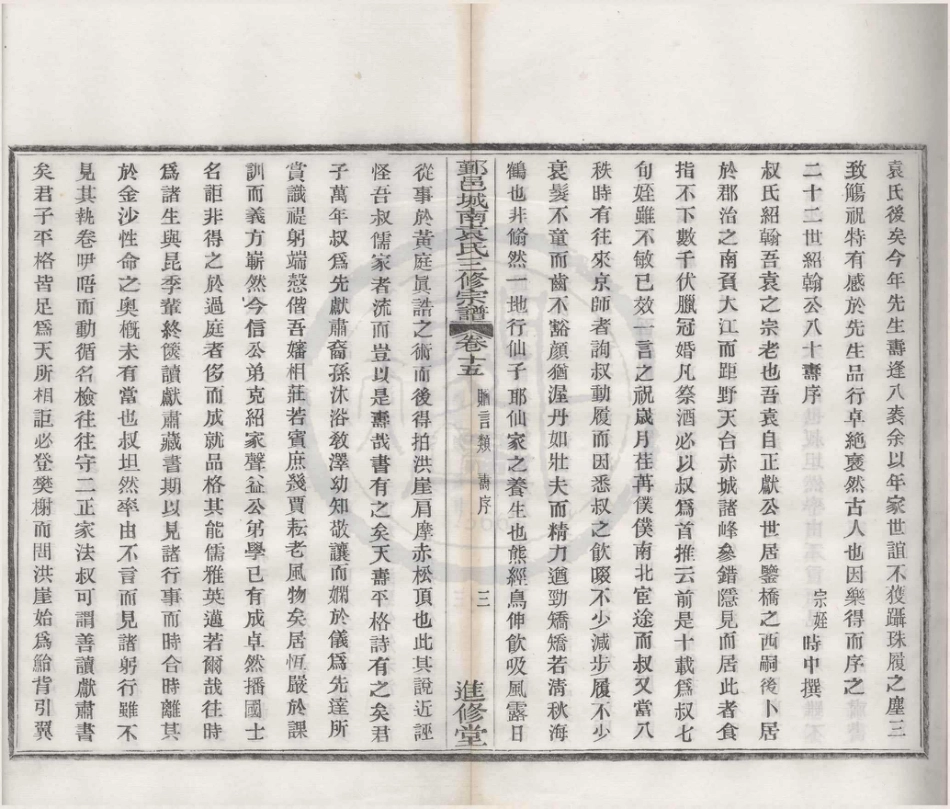 袁氏後矣今年先生壽逢八袠余以年家世誼不獲躡珠履之塵三
致觴祝特有感於先生品行卓絶裒然古人也因樂得而序之
二十二世紹翰公八十壽序 宗姪 時中撰
叔氏紹翰吾袁之宗老也吾袁自正獻公世居鑒橋之西嗣後卜居
於郡治之南負大江而距野天台赤城諸峰參錯隱見而居此者食
指不下數千伏臘冠婚凡祭酒必以叔爲首推云前是十載爲叔七
旬姪雖不敏已效一言之祝嵗月荏苒僕僕南北宦途而叔又當八
秩時有往來京師者詢叔動履而因悉叔之飲啜不少減步履不少
衰髮不童而齒不豁顔猶渥丹如壯夫而精力遒勁矯矯若淸秋海
鶴也非翛然一地行仙子耶仙家之養生也熊經鳥伸飲吸風露日
鄞邑城南袁氏三修宗譜 卷十五 贈言類 壽序 三 進修堂
從事於黃庭眞誥之術而後得拍洪崖肩摩赤松頂也此其說近誣
怪吾叔儒家者流而豈以是壽哉書有之矣天壽平格詩有之矣君
子萬年叔爲先獻肅裔孫沐浴敎澤幼知敬讓而嫻於儀爲先達所
賞識禔躬端慤偕吾嬸相莊若賓庶幾賈耘老風物矣居恆嚴於課
訓而義方嶄然今信公弟克紹家聲益公弟學已有成卓然播國士
名詎非得之於過庭者侈而成就品格其能儒雅英邁若爾哉往時
爲諸生與昆季輩終篋讀獻肅藏書期以見諸行事而時合時離其
於金沙性命之奥槪未有當也叔坦然率由不言而見諸躬行雖不
見其執卷咿唔而動循名檢往往守二正家法叔可謂善讀獻肅書
矣君子平格皆足爲天所相詎必登樊榭而問洪崖始爲鮐背引翼